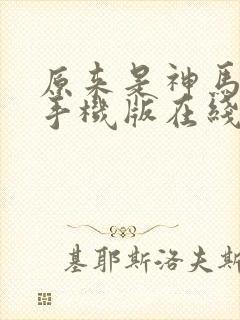 原来是神馬
手機版在綫
基耶斯洛夫斯